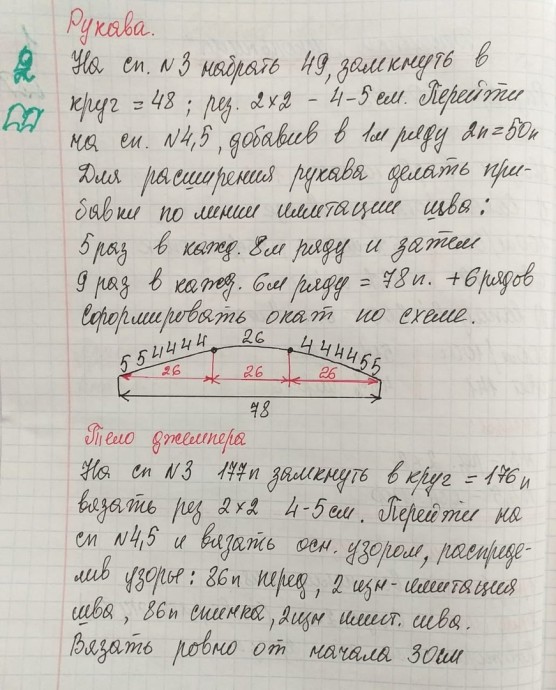 Рукава.
На сп. N3 набрать 49, замкнуть в
круг = 48; рез. 2×2 - 4-5 см. Перейти
на сп. N4,5, добавив в 1м ряду 2п=50п
Для расширения рукава делать при-
бавки по линии имитации шва:
5 раз в кажд. 8м ряду и затем
9 раз в кажд. 6м ряду = 78п. +6 рядов
Сформировать окат по схеме.
5 5 4 4 4 4 26 4 4 4 4 5 5
26 26 26
78
Тело джемпера
На сп N3 177п замкнуть в круг = 176п
вязать рез 2×2 4-5 см. Перейти на
сп N4,5 и вязать осн. узором, распреде-
лив узоры: 86п перед, 2 изн-имитация
шва, 86п спинка, 2изн имит. шва.
Вязать ровно от начала 30см